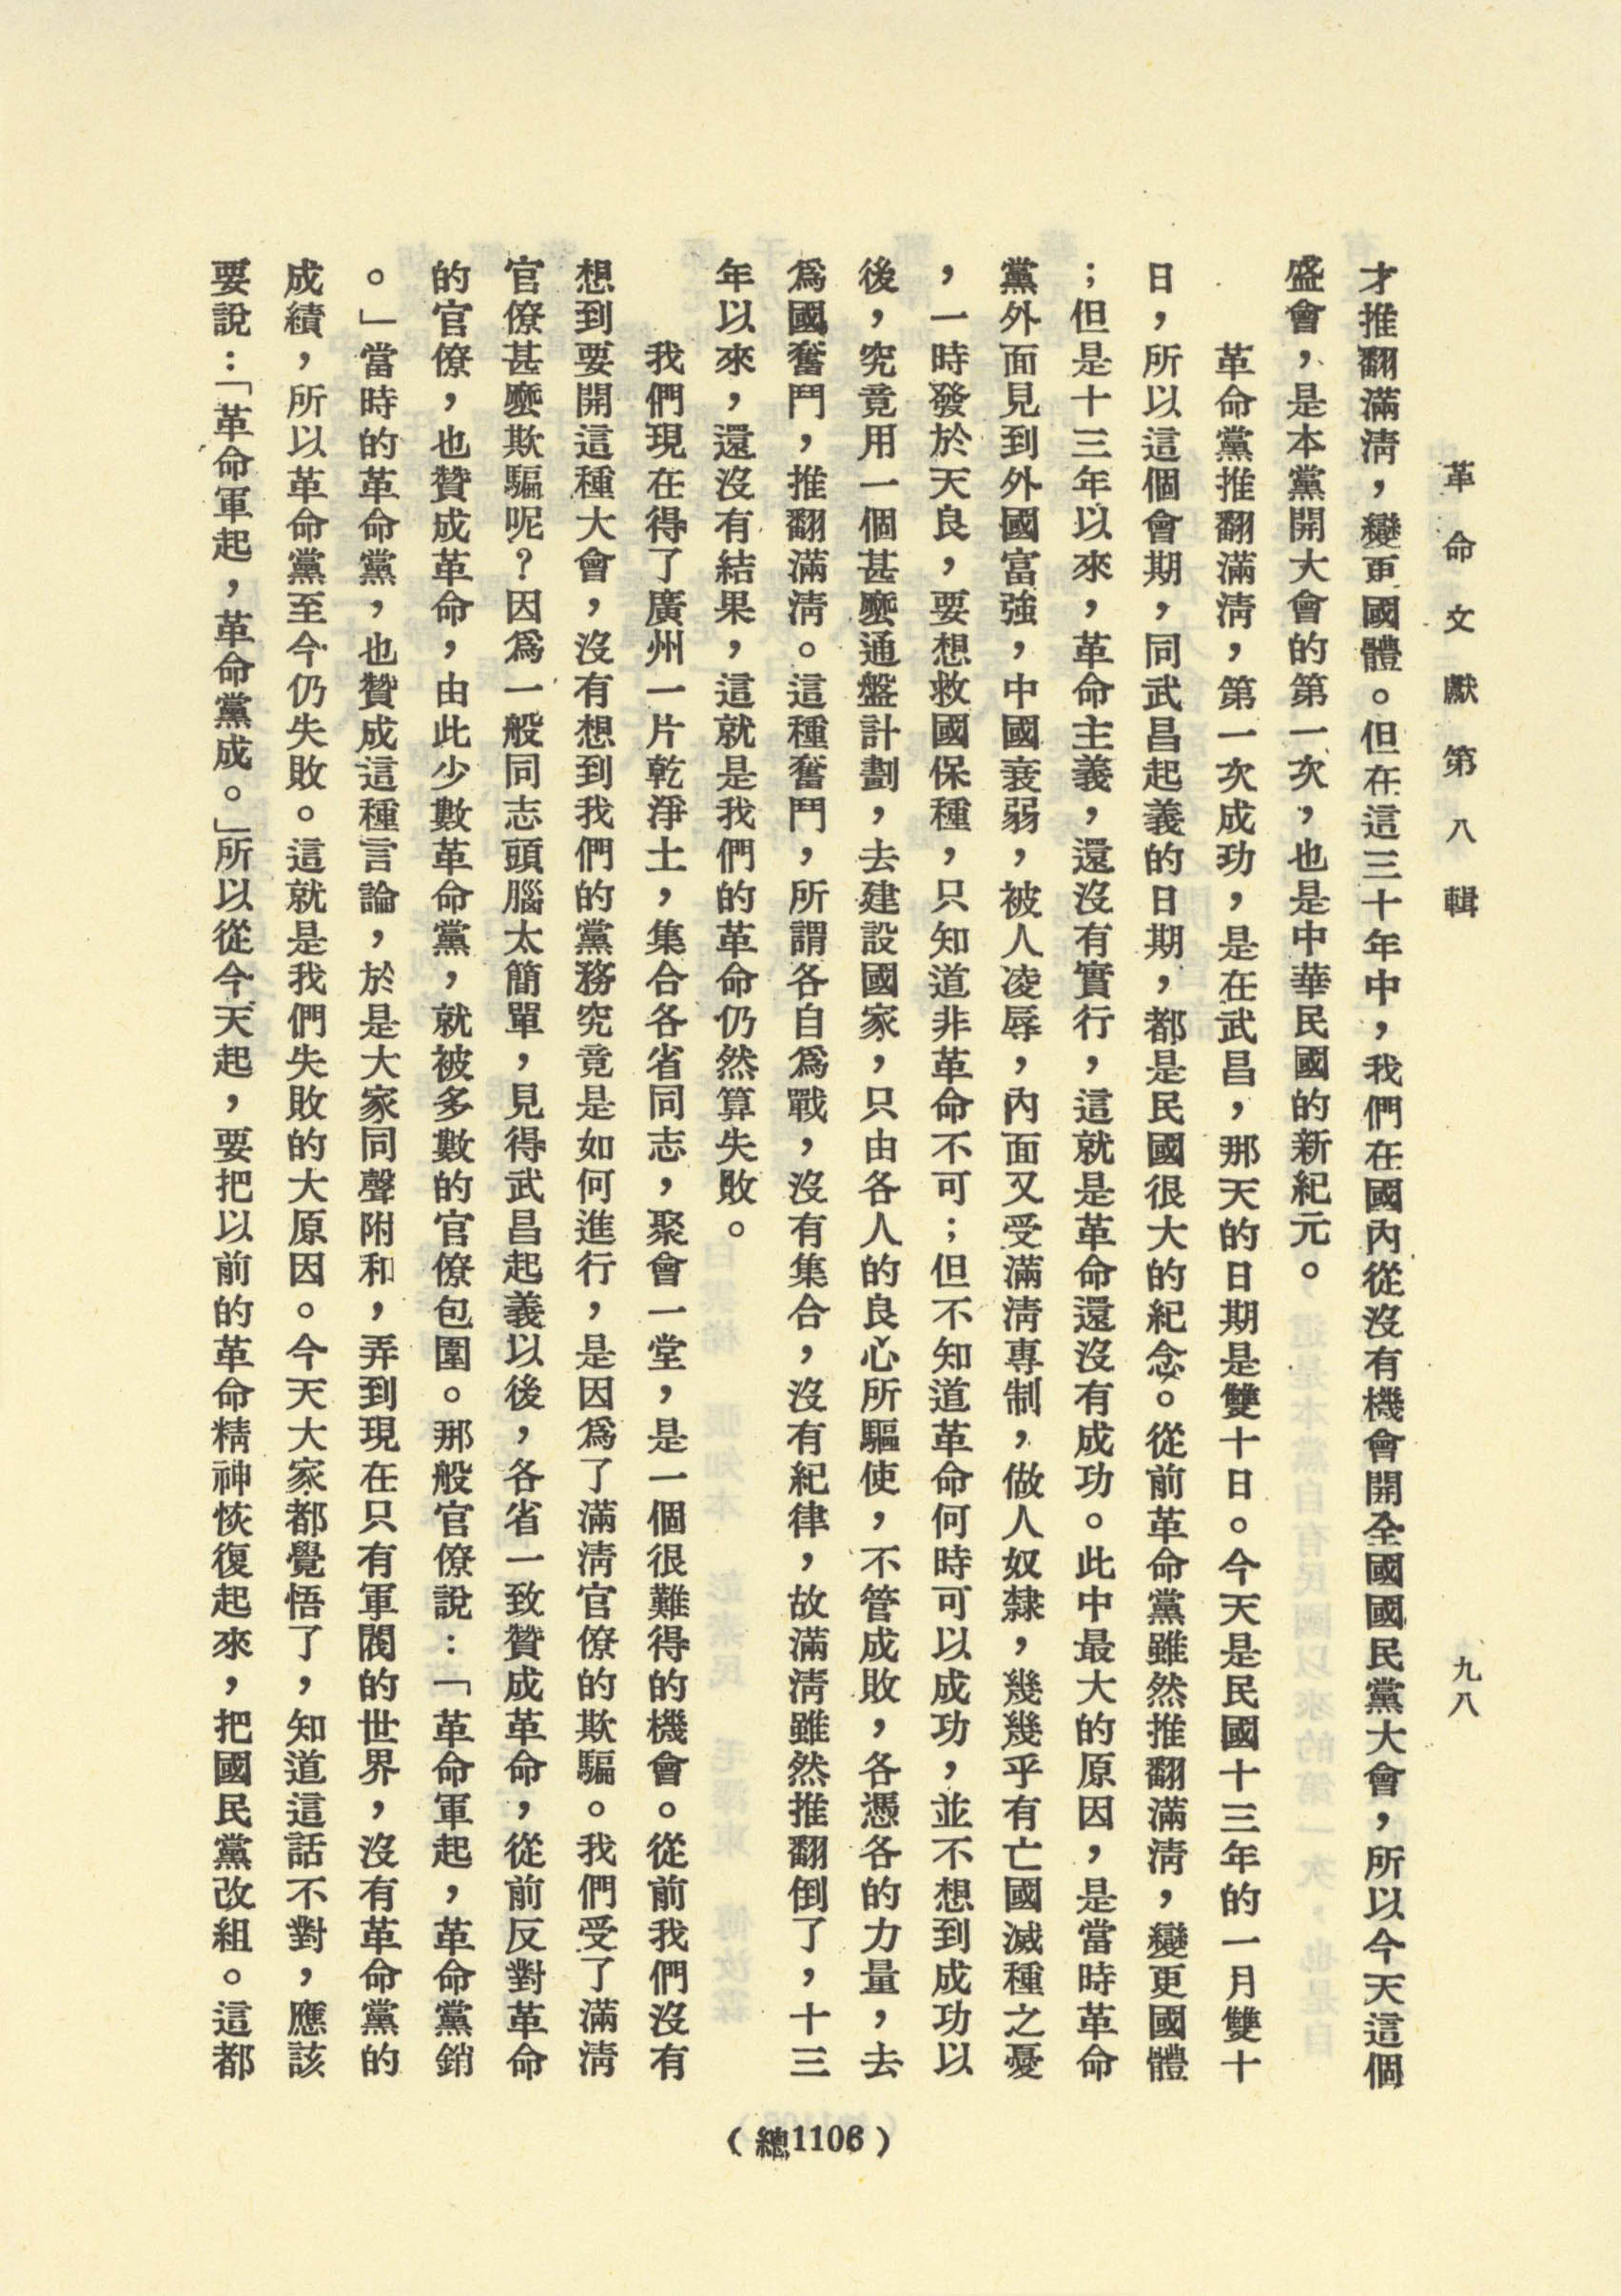 革命文獻第八輯
九八
才推翻滿淸，變更國體。但在這三十年中，我們在國內從沒有機會開全國國民黨大會，所以今天這個
盛會，是本黨開大會的第一次，也是中華民國的新紀元。
革命黨推翻滿淸，第一次成功，是在武昌，那天的日期是雙十日。今天是民國十三年的一月雙十
日，所以這個會期，同武昌起義的日期，都是民國很大的紀念。從前革命黨雖然推翻滿淸，變更國體
；但是十三年以來，革命主義，還沒有實行，這就是革命還沒有成功。此中最大的原因，是當時革命
黨外面見到外國富強，中國衰弱，被人凌辱，內面又受滿淸專制，做人奴隸，幾幾乎有亡國滅種之憂
，一時發於天良，要想救國保種，只知道非革命不可；但不知道革命何時可以成功，並不想到成功以
後，究竟用一個甚麼通盤計劃，去建設國家，只由各人的良心所驅使，不管成敗，各憑各的力量，去
爲國奮鬥，推翻滿淸。這種奮鬥，所謂各自爲戰，沒有集合，沒有紀律，故滿淸雖然推翻倒了，十三
年以來，還沒有結果，這就是我們的革命仍然算失敗。
我們現在得了廣州一片乾淨土，集合各省同志，聚會一堂，是一個很難得的機會。從前我們沒有
想到要開這種大會，沒有想到我們的黨務究竟是如何進行，是因爲了滿淸官僚的欺騙。我們受了滿淸
官僚甚麼欺騙呢？因爲一般同志頭腦太簡單，見得武昌起義以後，各省一致贊成革命，從前反對革命
的官僚，也贊成革命，由此少數革命黨，就被多數的官僚包圍。那般官僚說：「革命軍起，革命黨銷
。」當時的革命黨，也贊成這種言論，於是大家同聲附和，弄到現在只有軍閥的世界，沒有革命黨的
成績，所以革命黨至今仍失敗。這就是我們失敗的大原因。今天大家都覺悟了，知道這話不對，應該
要說：「革命軍起，革命黨成。」所以從今天起，要把以前的革命精神恢復起來，把國民黨改組。這都
（總1106）